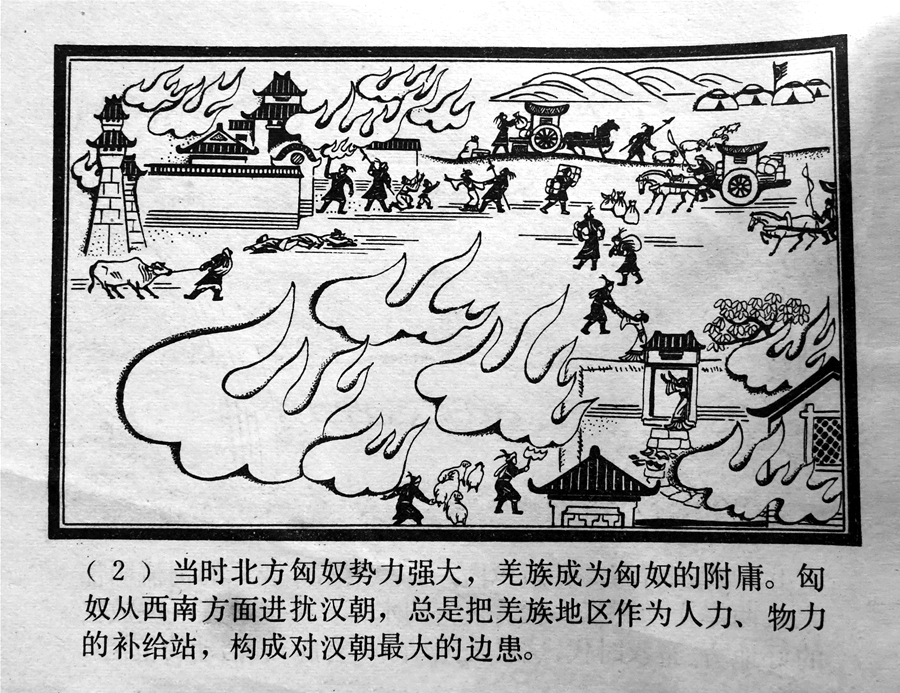 （2）当时北方匈奴势力强大，羌族成为匈奴的附庸。匈
奴从西南方面进扰汉朝，总是把羌族地区作为人力、物力
的补给站，构成对汉朝最大的边患。